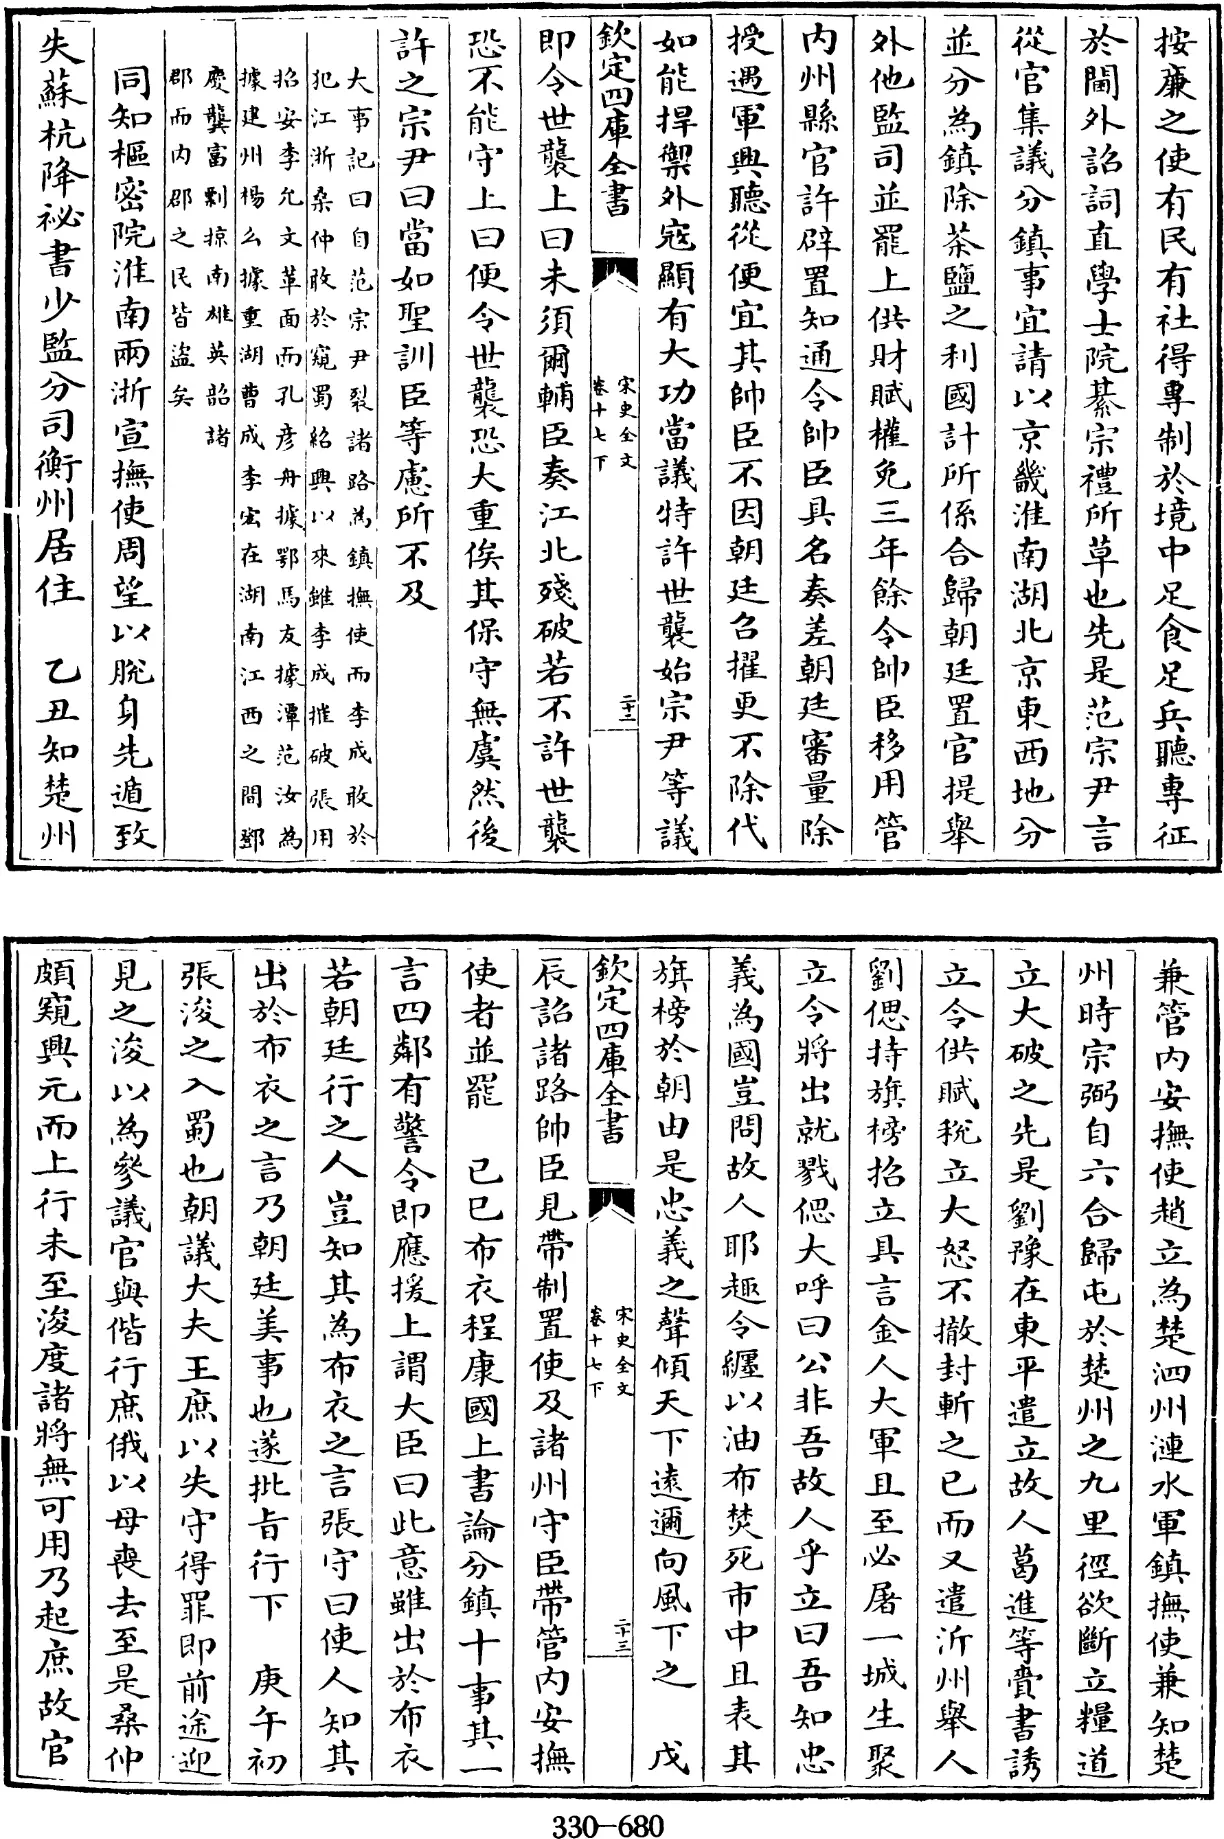 按廉之使有民有社得專制於境中足食足兵聽專征
於閫外詔詞直學士院綦宗禮所草也先是范宗尹言
從官集議分鎮事宜請以京畿淮南湖北京東西地分
並分為鎮除茶鹽之利國計所係合歸朝廷置官提舉
外他監司並罷上供財賦權免三年餘令帥臣移用管
内州縣官許辟置知通令帥臣具名奏差朝廷審量除
授遇軍興聽從便宜其帥臣不因朝廷召擢更不除代
如能捍禦外寇顯有大功當議特許世襲始宗尹等議
欽定四庫全書
宋史全文
卷十七下
二十二
即令世襲上曰未須爾輔臣奏江北殘破若不許世襲
恐不能守上曰便令世襲恐大重俟其保守無虞然後
許之宗尹曰當如聖訓臣等慮所不及
大事記曰自范宗尹裂諸路為鎮撫使而李成敢於
犯江浙桑仲敢於窺蜀紹興以來雖李成摧破張用
招安李允文革面而孔彦舟據鄂馬友據潭范汝為
據建州楊么據重湖曹成李宏在湖南江西之間鄧
慶龔富剽掠南雄英韶諸
郡而内郡之民皆盜矣
同知樞密院淮南兩浙宣撫使周望以脫身先遁致
失蘇杭降祕書少監分司衡州居住　乙丑知楚州
兼管内安撫使趙立為楚泗州漣水軍鎮撫使兼知楚
州時宗弼自六合歸屯於楚州之九里徑欲斷立糧道
立大破之先是劉豫在東平遣立故人葛進等賫書誘
立令供賦稅立大怒不撤封斬之已而又遣沂州舉人
劉偲持旗榜招立具言金人大軍且至必屠一城生聚
立令將出就戮偲大呼曰公非吾故人乎立曰吾知忠
義為國豈問故人耶趣令纒以油布焚死市中且表其
旗榜於朝由是忠義之聲傾天下遠邇向風下之　戊
欽定四庫全書
宋史全文
卷十七下
二十三
辰詔諸路帥臣見帶制置使及諸州守臣帶管内安撫
使者並罷　己巳布衣程康國上書論分鎮十事其一
言四鄰有警令即應援上謂大臣曰此意雖出於布衣
若朝廷行之人豈知其為布衣之言張守曰使人知其
出於布衣之言乃朝廷美事也遂批旨行下　庚午初
張浚之入蜀也朝議大夫王庶以失守得罪即前途迎
見之浚以為參議官與偕行庶俄以母喪去至是桑仲
頗窺興元而上行未至浚度諸將無可用乃起庶故官
330-680